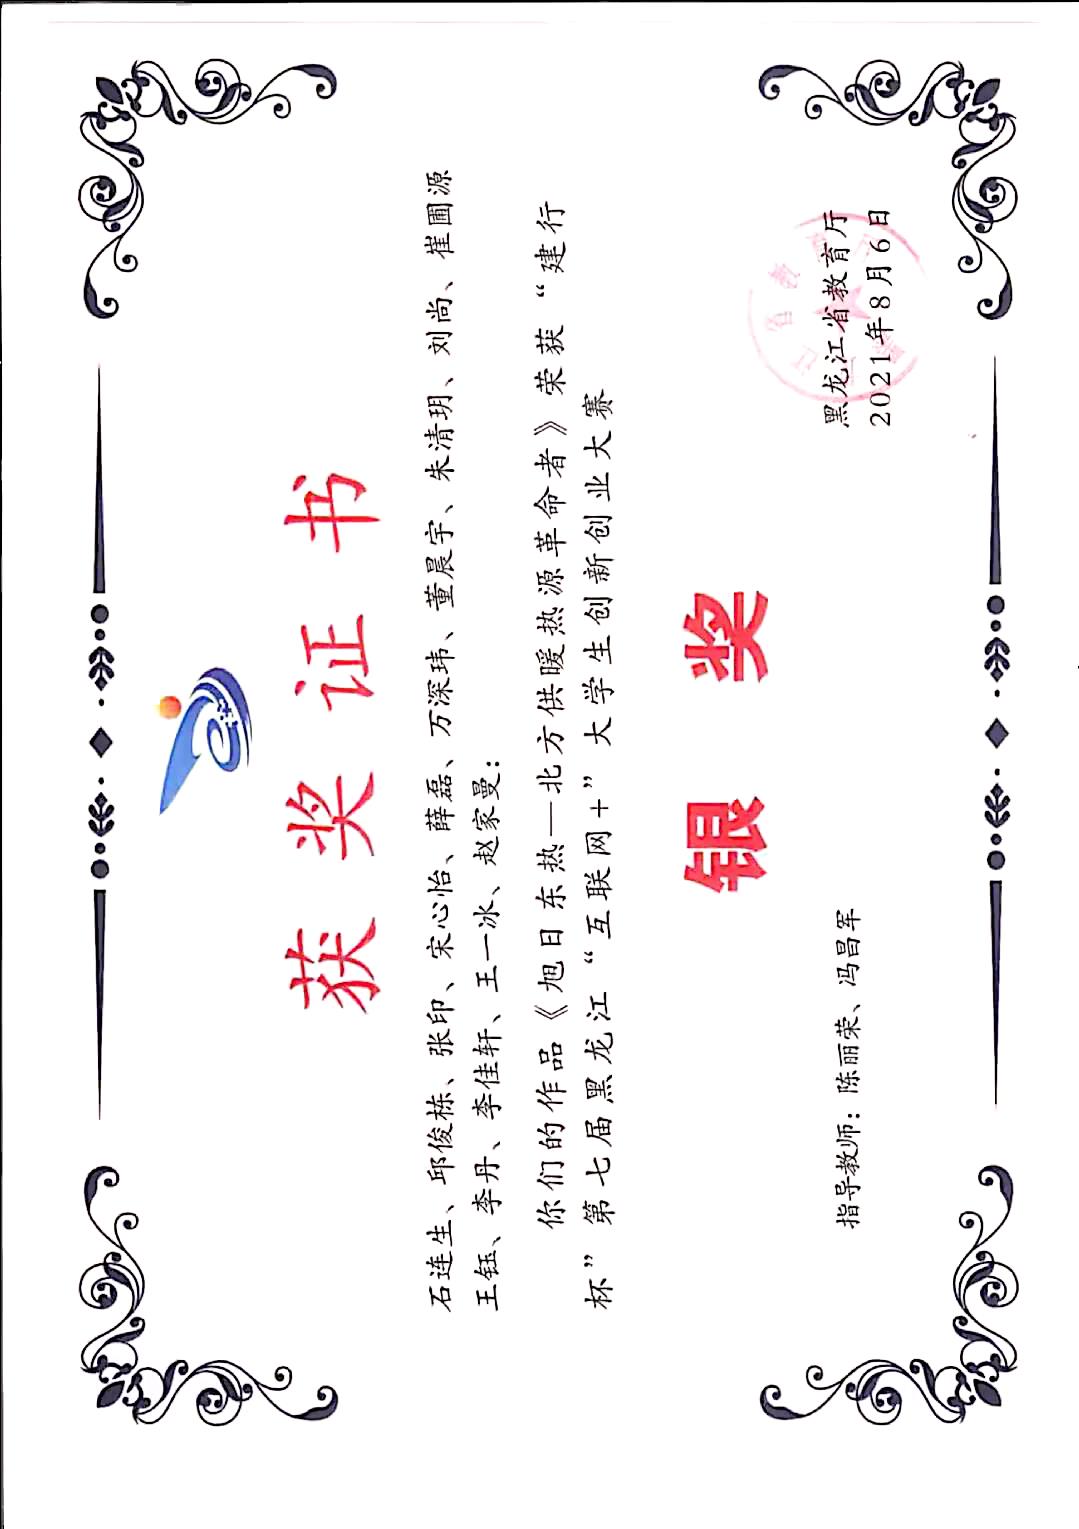 获奖证书
石连生、邱俊栋、张印、宋心怡、薛磊、万深玮、董晨宇、朱清玥、刘尚、崔圃源
王钰、李丹、李佳轩、王一冰、赵家曼：
你们的作品《旭日东热—北方供暖热源革命者》荣获“建行
杯”第七届黑龙江“互联网＋”大学生创新创业大赛
银奖
指导教师：陈丽荣、冯昌军
黑龙江省教育厅
2021年8月6日